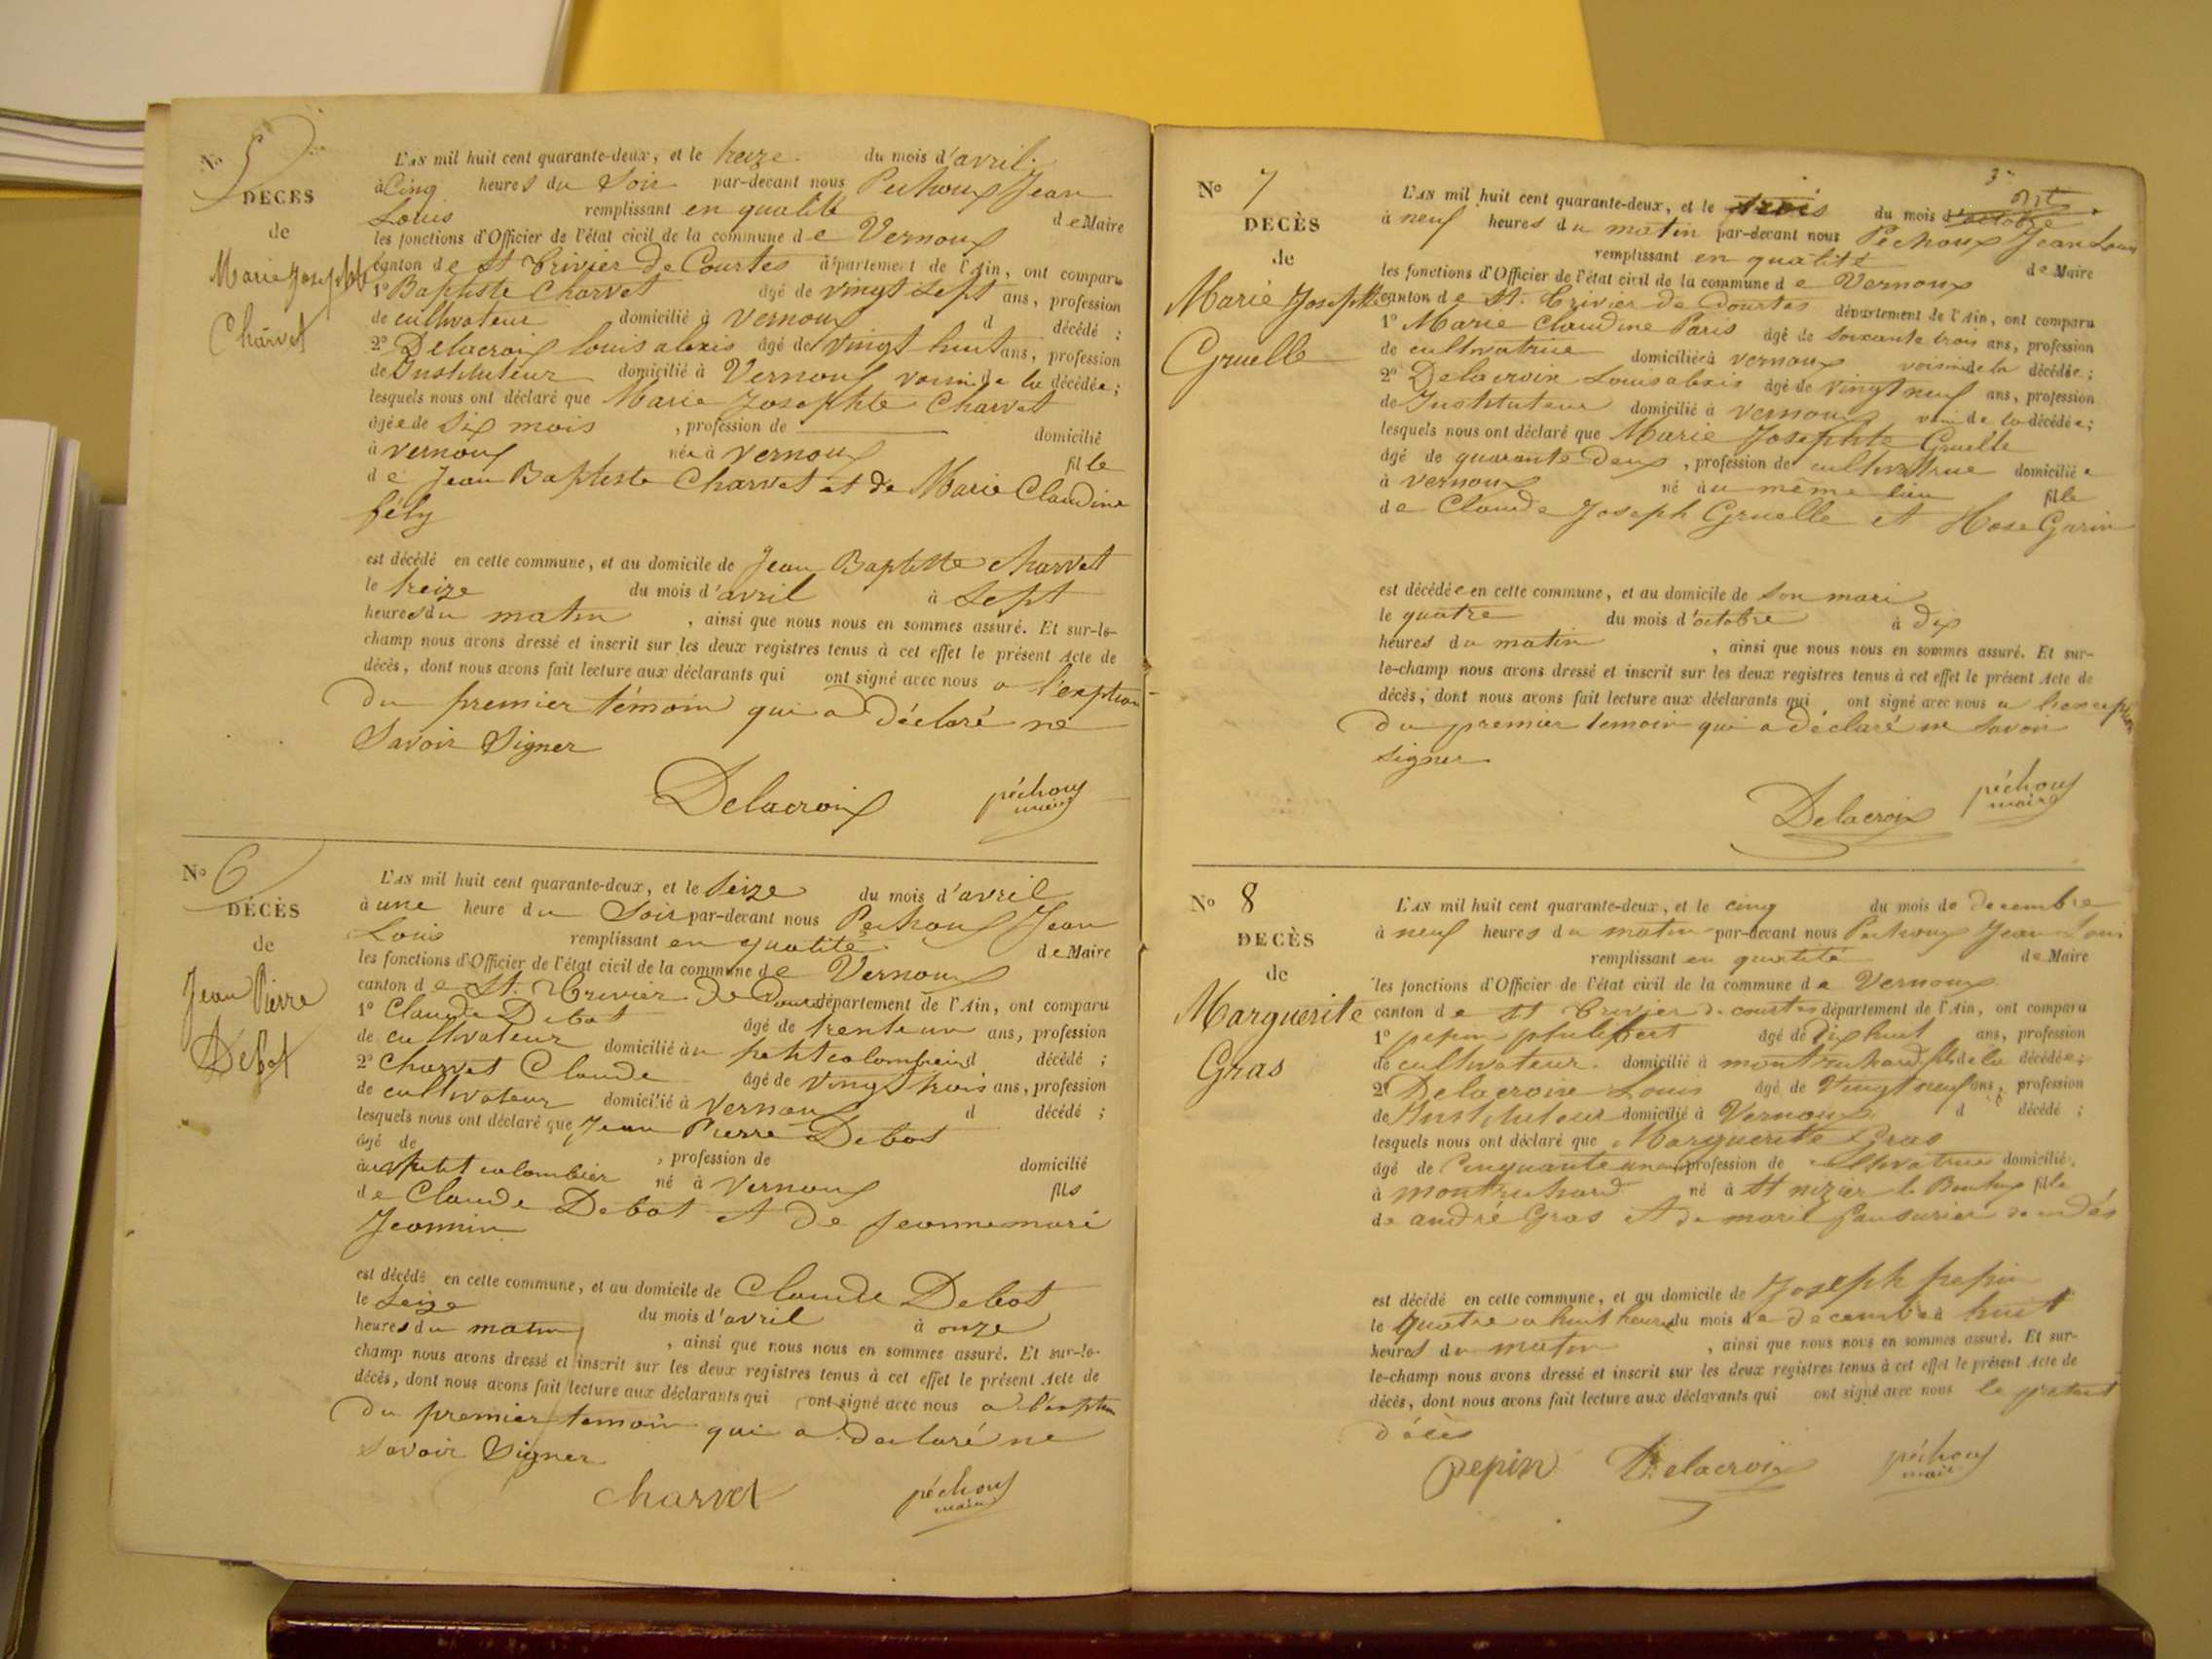 No 5
DECES
de
Marie Josephte
Charvet
L'AN mil huit cent quarante-deux, et le treize du mois d'avril
à Cinq heures du Soir par-devant nous Pechoux Jean
Louis remplissant en qualité de Maire
les fonctions d'Officier de l'état civil de la commune de Vernoux
canton de St Trivier De Courtes département de l'Ain, ont comparu
1° Baptiste Charvet âgé de vingt Sept ans, profession
de cultivateur domicilié à Vernoux d décédé ;
2° Delacroix louis alexis âgé de vingt huit ans, profession
de Instituteur domicilié à Vernoux voisin de la décédée ;
lesquels nous ont déclaré que Marie Josephte Charvet
âgée de Six mois , profession de domicilié
à vernoux née à vernoux fille
de Jean Baptiste Charvet et de Marie Claudine
fély
est décédé en cette commune, et au domicile de Jean Baptiste charvet
le treize du mois d'avril à Sept
heures du matin , ainsi que nous nous en sommes assuré. Et sur-le-
champ nous avons dressé et inscrit sur les deux registres tenus à cet effet le présent Acte de
décès, dont nous avons fait lecture aux déclarants qui ont signé avec nous a l'exption
du premier témoin qui a Déclaré ne
Savoir Signer
Delacroix péchoux
maire
No 6
DÉCÈS
de
Jean Pierre
Debot
L'AN mil huit cent quarante-deux, et le Seize du mois d'avril
à une heure du Soir par-devant nous Pechoux Jean
Louis remplissant en qualité de Maire
les fonctions d'Officier de l'état civil de la commune de Vernoux
canton de St. Trivier De Courtes département de l'Ain, ont comparu
1° Claude Debot âgé de trente un ans, profession
de cultivateur domicilié àu petit colombier d décédé ;
2° Charvet Claude âgé de vingt trois ans, profession
de cultivateur domicilié à Vernoux d décédé ;
lesquels nous ont déclaré que Jean Pierre Debot
âgé de , profession de domicilié
àu petit colombier né à Vernoux fils
de Claude Debot et de Jeanne mari
Jeannin
est décédé en cette commune, et au domicile de Claude Debot
le Seize du mois d'avril à onze
heures du matin , ainsi que nous nous en sommes assuré. Et sur-le-
champ nous avons dressé et inscrit sur les deux registres tenus à cet effet le présent Acte de
décès, dont nous avons fait lecture aux déclarants qui ont signé avec nous a l'exption
du premier temoin qui a declaré ne
savoir Signer
charvet péchoux
maire
No 7
DECÈS
de
Marie Josephte
Gruelle
L'AN mil huit cent quarante-deux, et le trois du mois d'octobre
à neuf heures du matin par-devant nous Pechoux Jean Louis
remplissant en qualité de Maire
les fonctions d'Officier de l'état civil de la commune de Vernoux
canton de St. Trivier de Courtes département de l'Ain, ont comparu
1° Marie Claudine Paris âgé de soixante trois ans, profession
de cultivatrice domiciliée à vernoux voisin de la décédée ;
2° Delacroix Louis alexis âgé de vingt neuf ans, profession
de Instituteur domicilié à vernoux voin de la décédée ;
lesquels nous ont déclaré que Marie Josephte Gruelle
âgé de quarante Deux , profession de cultivatrice domiciliée
à vernoux né àu même lieu fille
de Claude Joseph Gruelle et Rose Garin
est décédée en cette commune, et au domicile de son mari
le quatre du mois d'octobre à dix
heures du matin , ainsi que nous nous en sommes assuré. Et sur-
le-champ nous avons dressé et inscrit sur les deux registres tenus à cet effet le présent Acte de
décès, dont nous avons fait lecture aux déclarants qui ont signé avec nous a l'exception
du premier temoin qui a déclaré ne savoir
signer
Delacroix péchoux
maire
No 8
DECÈS
de
Marguerite
Gras
L'AN mil huit cent quarante-deux, et le cinq du mois de decembre
à neuf heures du matin par-devant nous Pechoux Jean Loui
remplissant en quatité de Maire
les fonctions d'Officier de l'état civil de la commune de Vernoux
canton de St Trivier de courtes département de l'Ain, ont comparu
1° pepin philibert âgé de Dix huit ans, profession
de cultivateur domicilié à montruchard fils de la décédée ;
2° Delacroix Louis âgé de vingt neuf ans, profession
de Instituteur domicilié à Vernoux d décédé ;
lesquels nous ont déclaré que Marguerite Gras
âgé de Cinquante un profession de cultivatrice domicilié
à montruchard né à St nizier le Bouchoux fille
de andré Gras et de marie
est décédé en cette commune, et au domicile de Joseph pepin
le quatre a huit heures du mois de decembre à huit
heures du matin , ainsi que nous nous en sommes assuré. Et sur-
le-champ nous avons dressé et inscrit sur les deux registres tenus à cet effet le présent Acte de
décès, dont nous avons fait lecture aux déclarants qui ont signé avec nous le
décès
pepin Delacroix péchoux
maire